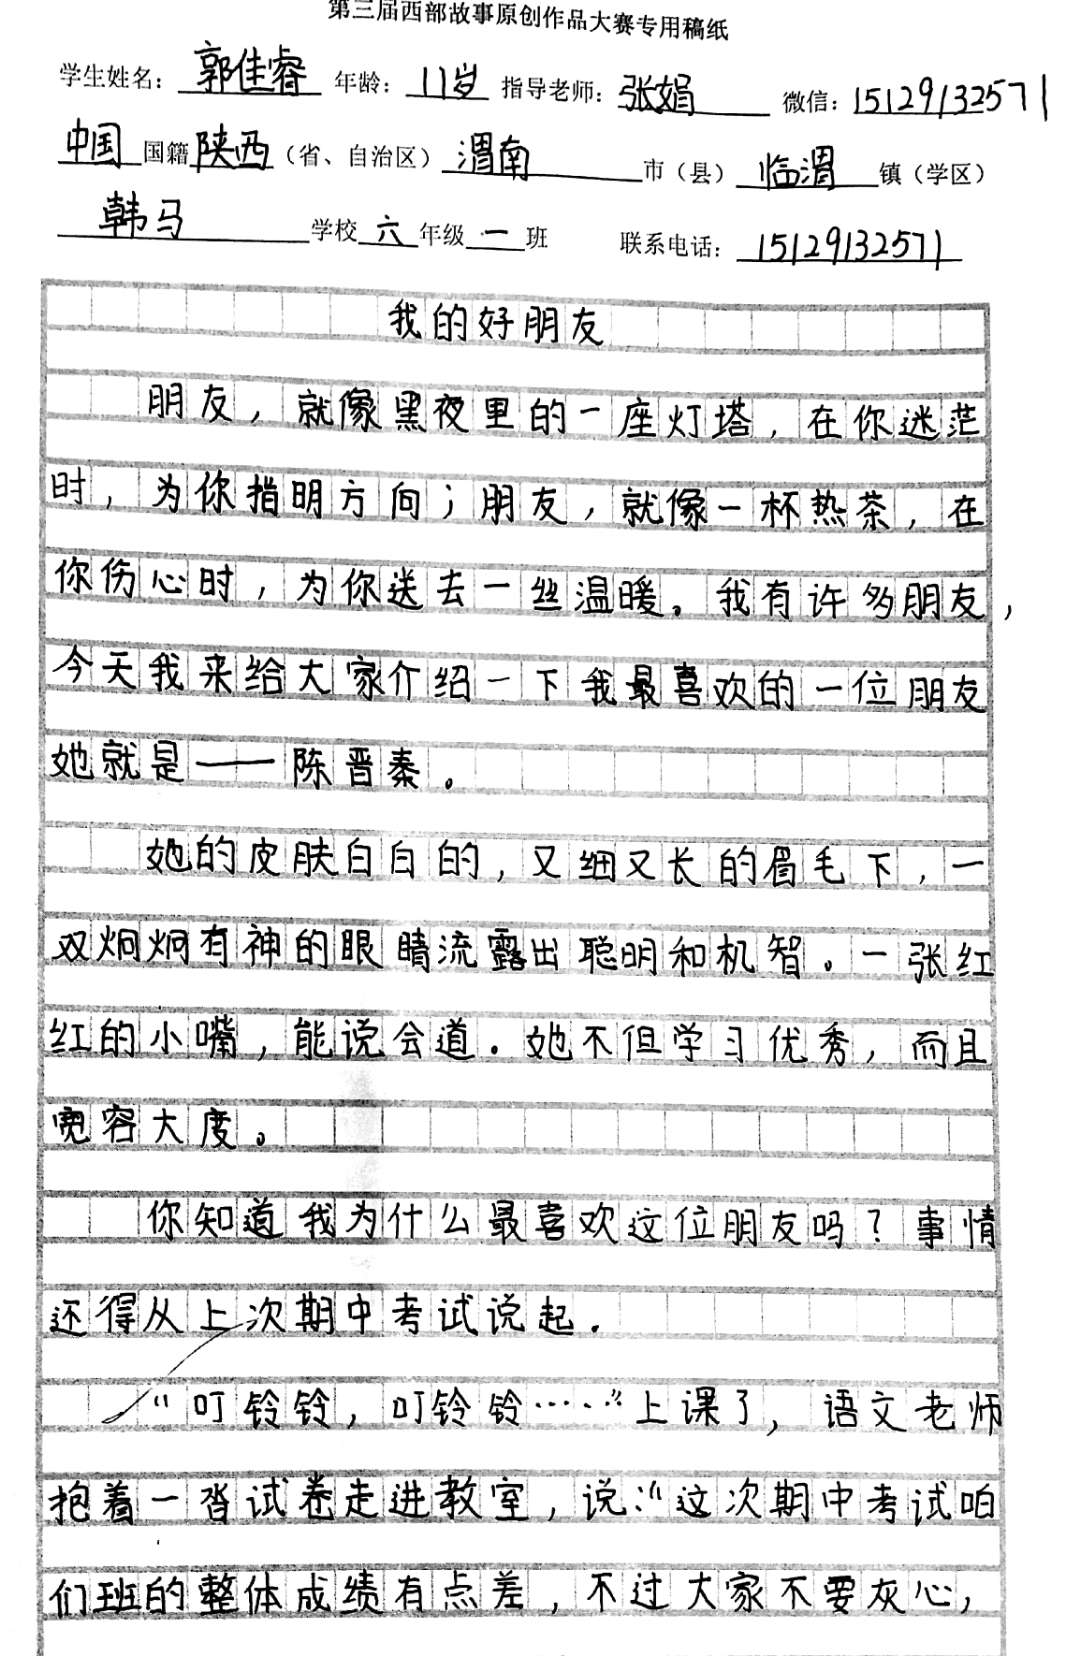 第三届西部故事原创作品大赛专用稿纸
学生姓名：郭佳睿 年龄：11岁 指导老师：张娟 微信：15129132571
中国国籍陕西（省、自治区）渭南市（县）临渭镇（学区）
韩马学校六年级一班 联系电话：15129132571
我的好朋友
朋友，就像黑夜里的一座灯塔，在你迷茫
时，为你指明方向；朋友，就像一杯热茶，在
你伤心时，为你送去一丝温暖。我有许多朋友，
今天我来给大家介绍一下我最喜欢的一位朋友
她就是——陈晋秦。
她的皮肤白白的，又细又长的眉毛下，一
双炯炯有神的眼睛流露出聪明和机智。一张红
红的小嘴，能说会道。她不但学习优秀，而且
宽容大度。
你知道我为什么最喜欢这位朋友吗？事情
还得从上次期中考试说起.
“叮铃铃，叮铃铃……”上课了，语文老师
抱着一沓试卷走进教室，说：“这次期中考试咱
们班的整体成绩有点差，不过大家不要灰心，